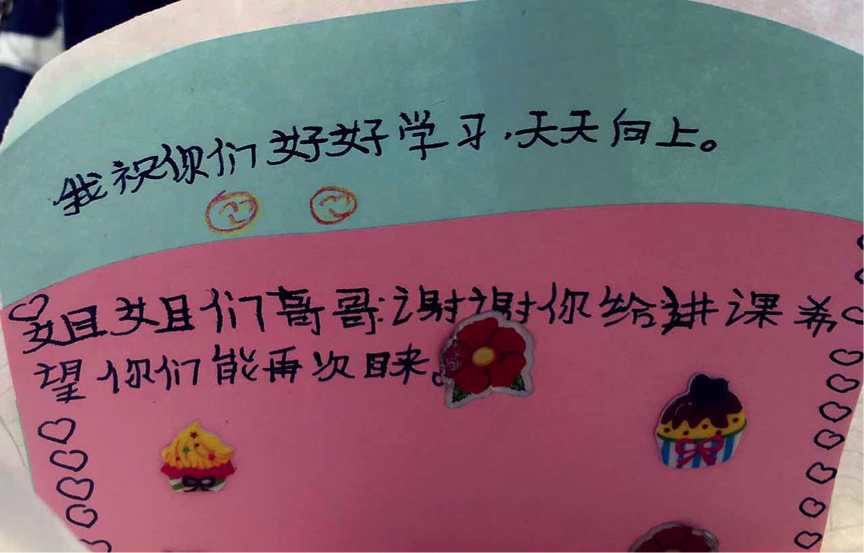 我祝你们好好学习.天天向上。
姐姐们哥哥:谢谢你给讲课希
望你们能再次目来。